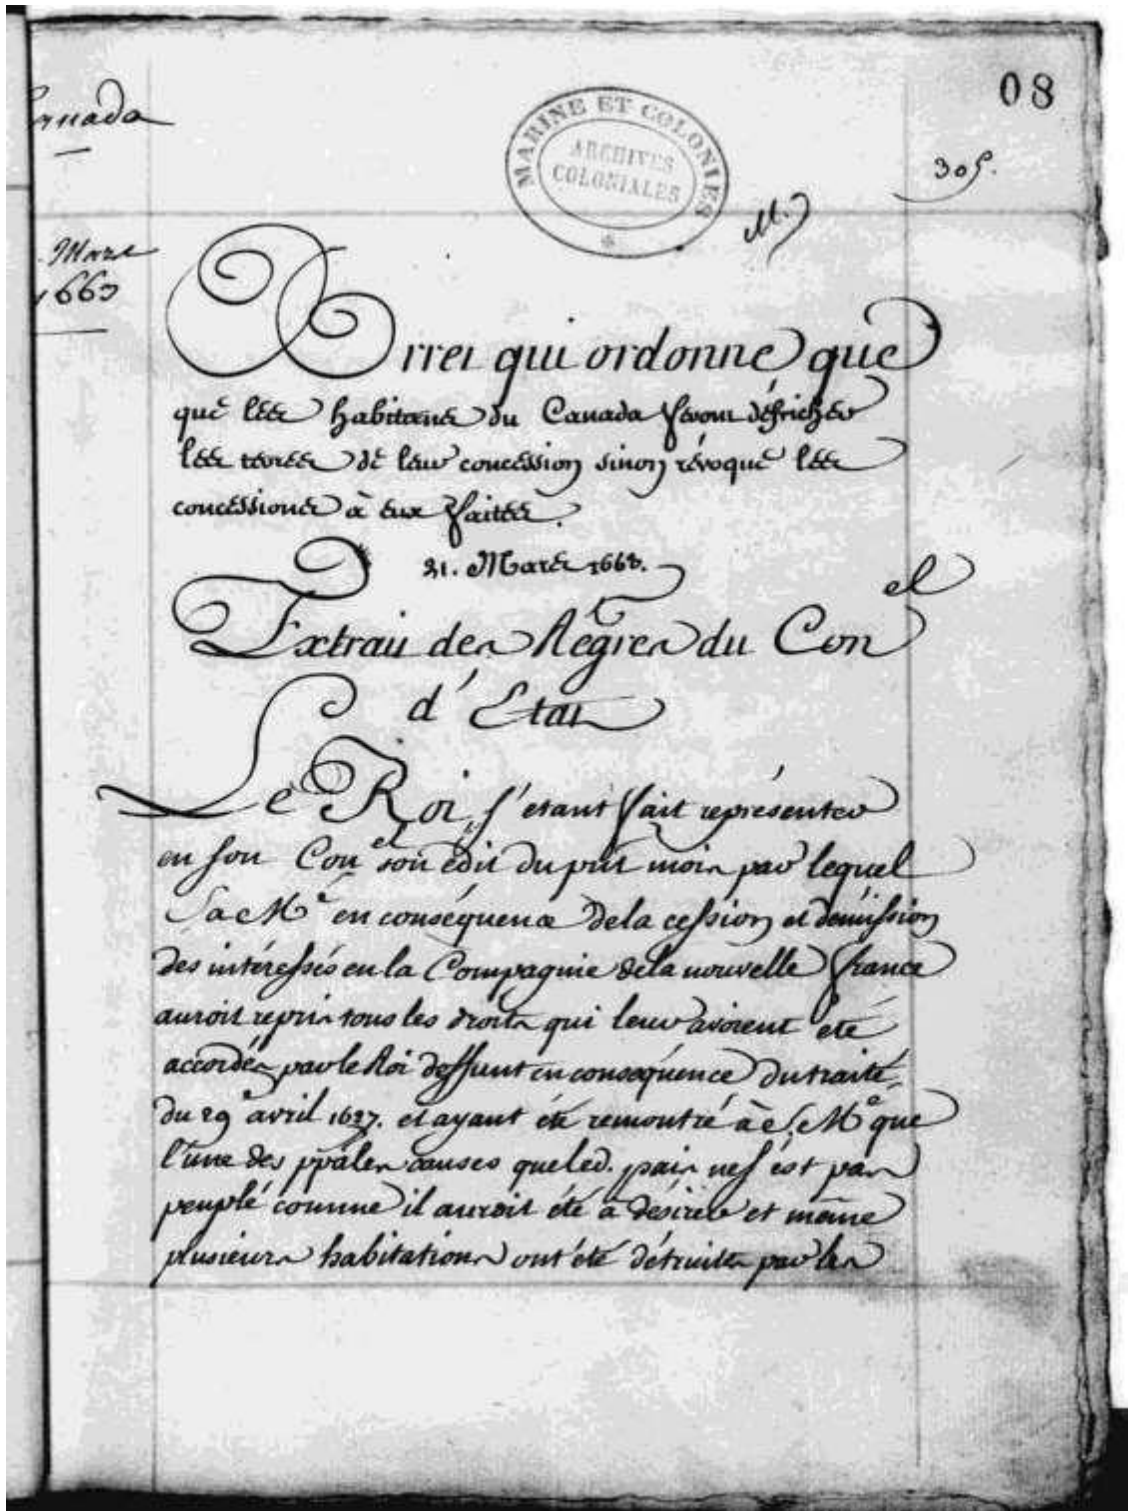 08
Canada
MARINE ET COLONIES
ARCHIVES
COLONIALES
305.
M.
Mars
1663
Arret qui ordonne que
que les habitans du Canada feront défricher
les terres de leur concession sinon révoque les
concessions à eux faites.
21. Mars 1663.
Extrait des Régres du Conel
d'Etat
Le Roi s'etant fait représenter
en son Conel son édit du prnt mois par lequel
Sa Mé en conséquence de la cession et démission
des intéressés en la Compagnie de la nouvelle france
auroit repris tous les droits qui leur avoient été
accordés par le Roi deffunt en conséquence du traité
du 29e avril 1627. et ayant été remontré à S. Mé que
l'une des ppales causes que led. pais ne s'est pas
peuplé comme il auroit été à désirer et même
plusieurs habitations ont été détruites par les